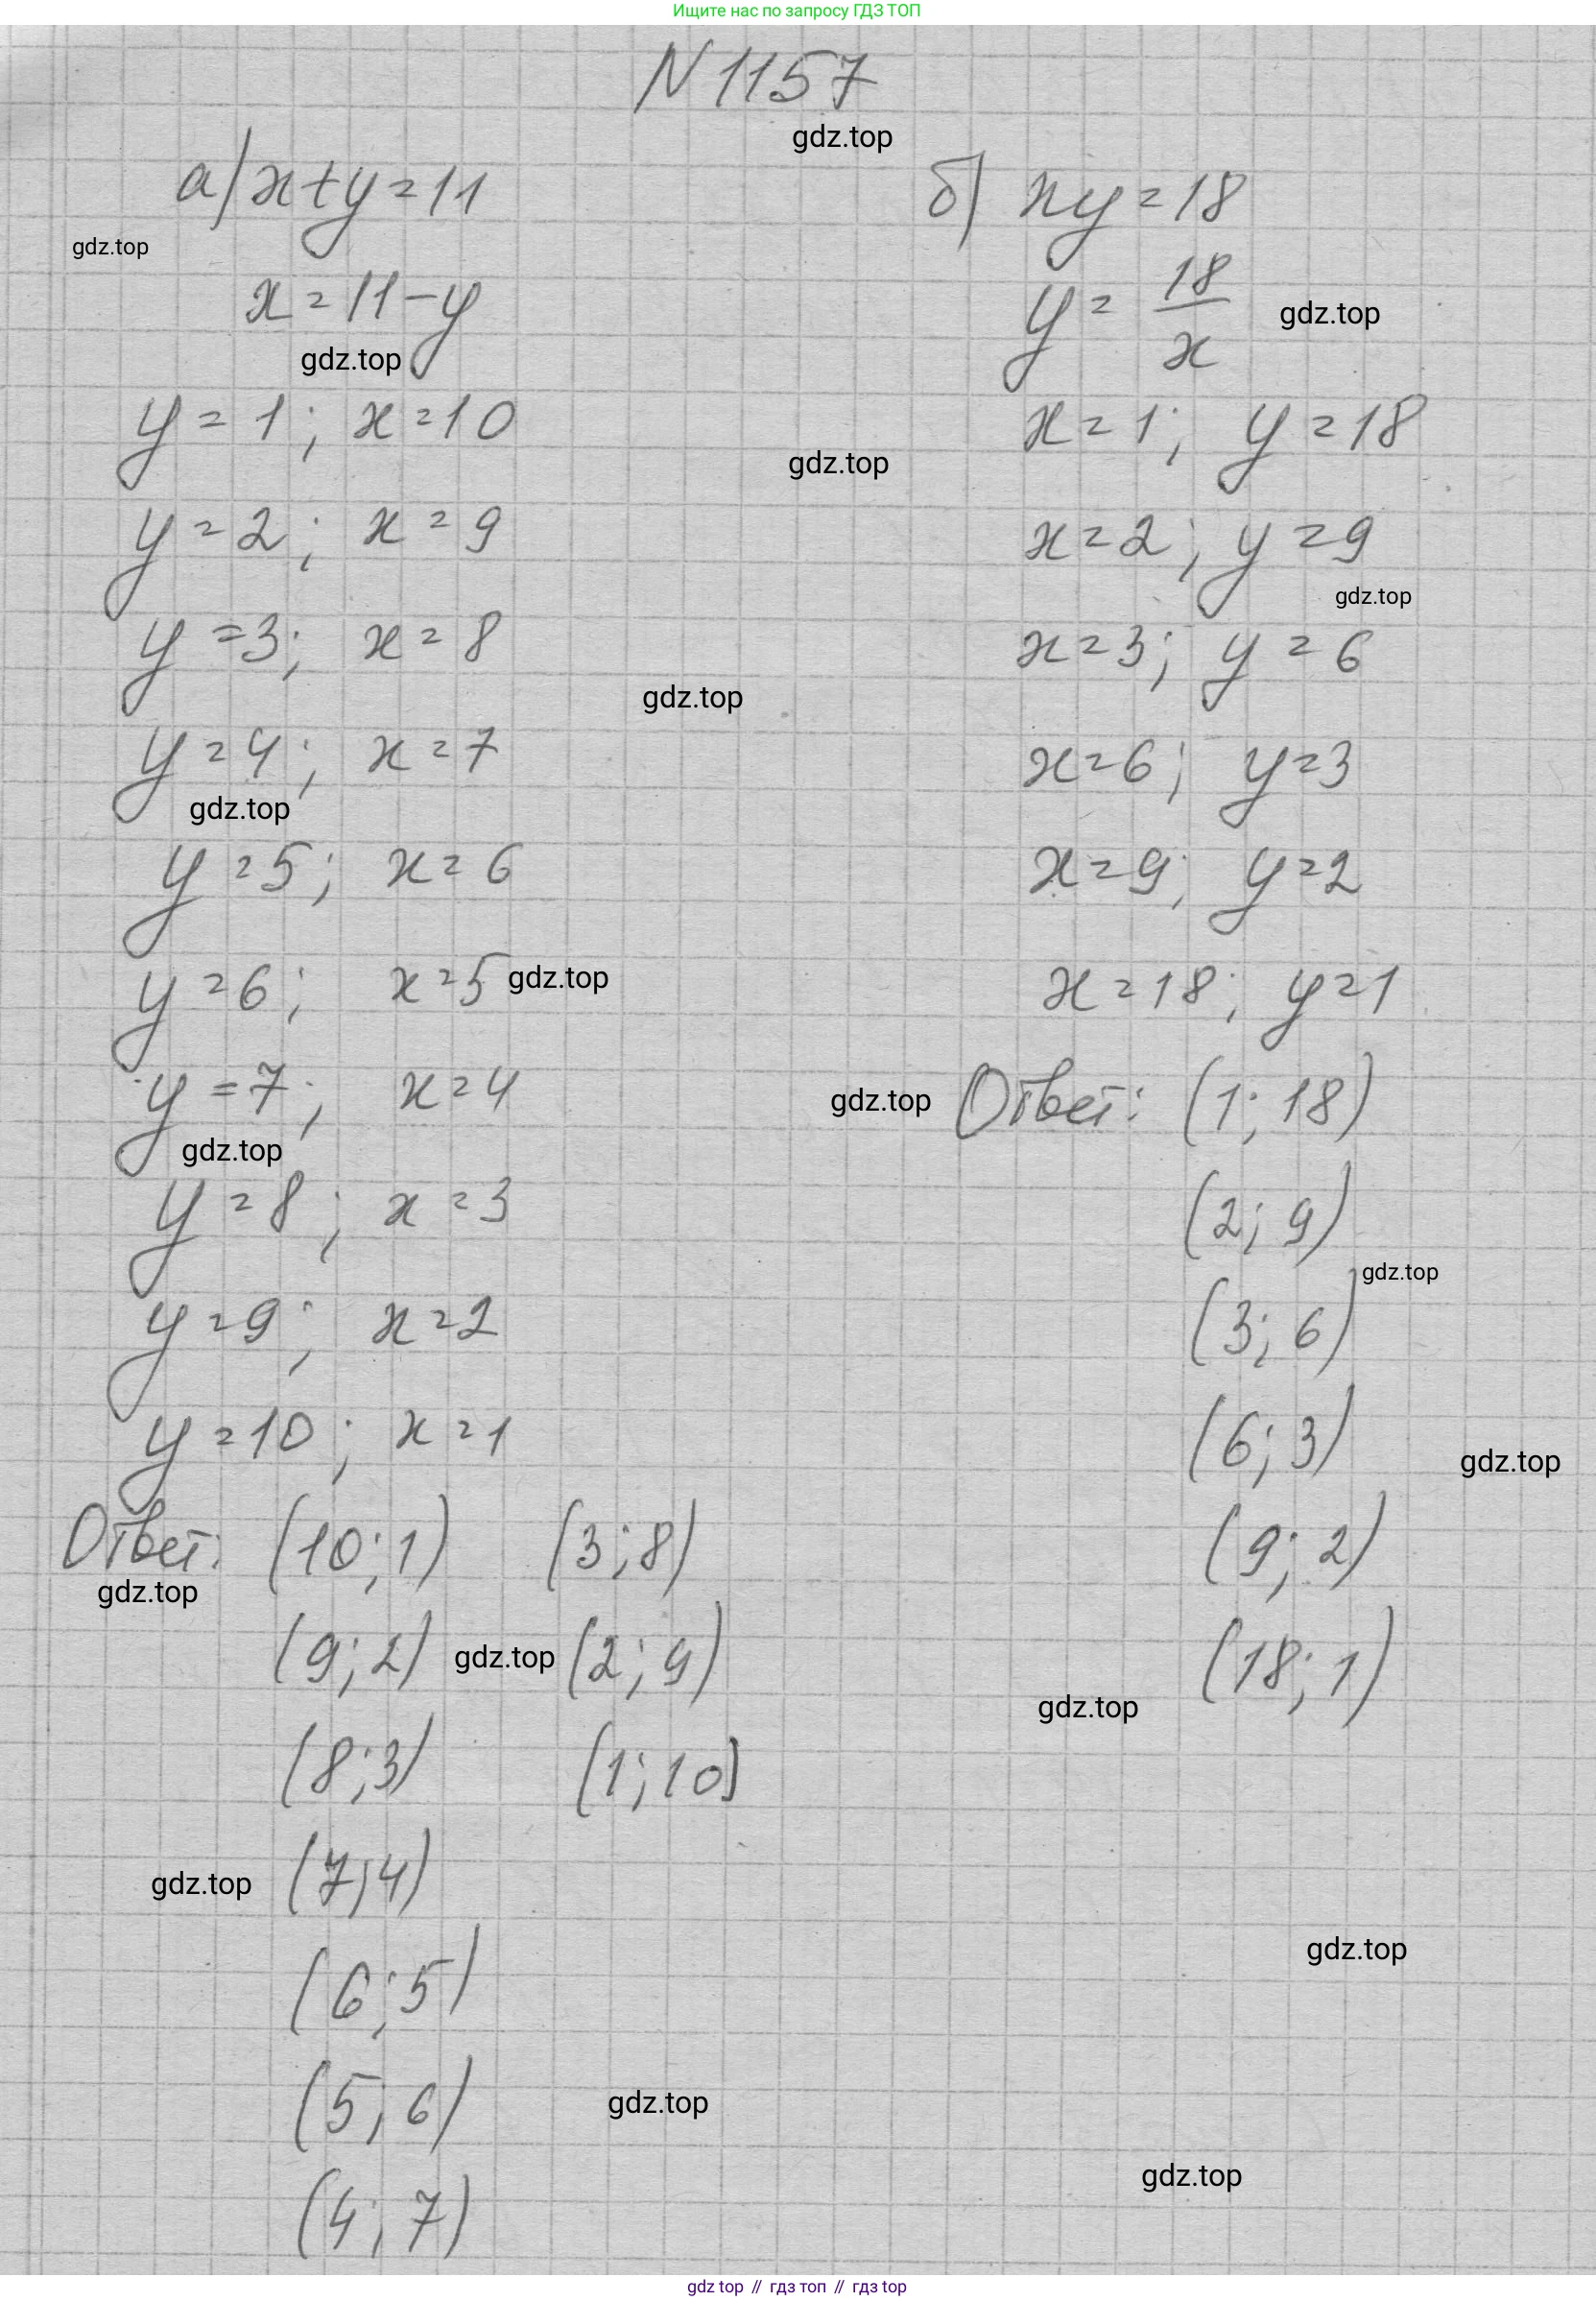 Ищите нас по запросу ГДЗ ТОП
N 1157
gdz.top
а) x+y=11
gdz.top
x=11-y
gdz.top
y=1; x=10
y=2; x=9
y=3; x=8
gdz.top
y=4; x=7
gdz.top
y=5; x=6
y=6; x=5 gdz.top
y=7; x=4
gdz.top
y=8; x=3
y=9; x=2
y=10; x=1
Ответ: (10;1) (3;8)
gdz.top
(9;2) gdz.top (2;9)
(8;3) (1;10)
gdz.top (7;4)
(6;5)
(5;6) gdz.top
(4;7)
б) xy=18
y=18/x gdz.top
gdz.top x=1; y=18
x=2; y=9
gdz.top
x=3; y=6
x=6; y=3
x=9; y=2
x=18; y=1
gdz.top Ответ: (1; 18)
(2; 9)
gdz.top
(3; 6)
(6; 3) gdz.top
(9; 2)
(18; 1)
gdz.top
gdz.top
gdz.top
gdz top // гдз топ // гдз top